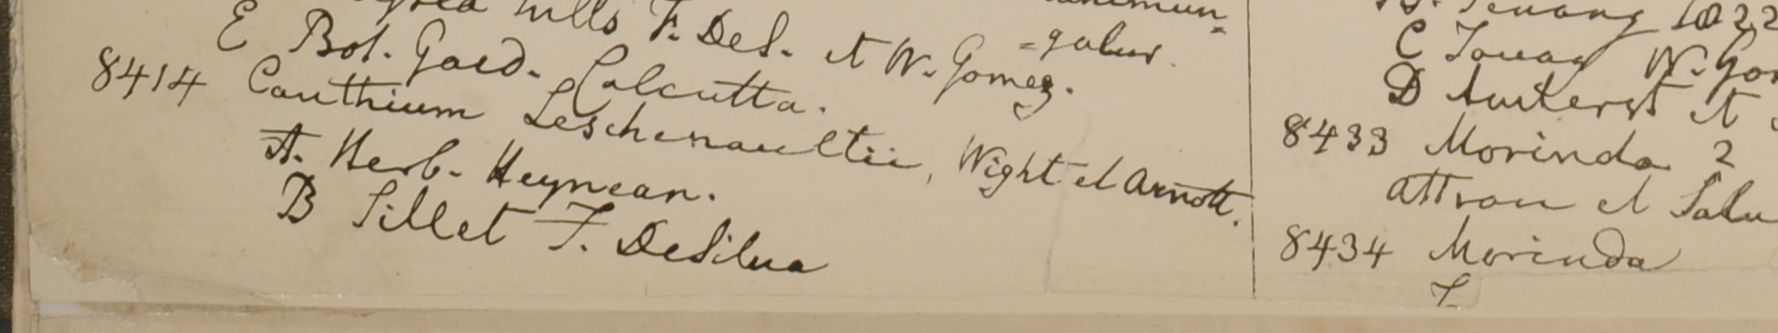 hills F. DeS. et W. Gomez.
= galur.
E Bot. Gard. Calcutta.
8414 Canthium Leschenaultii, Wight et Arnott.
A. Herb. Heynean.
B Sillet F. DeSilva
1822
C Tavay W. Gom
D Amherst et
8433 Morinda 2
Attran et Salu
8434 Morinda